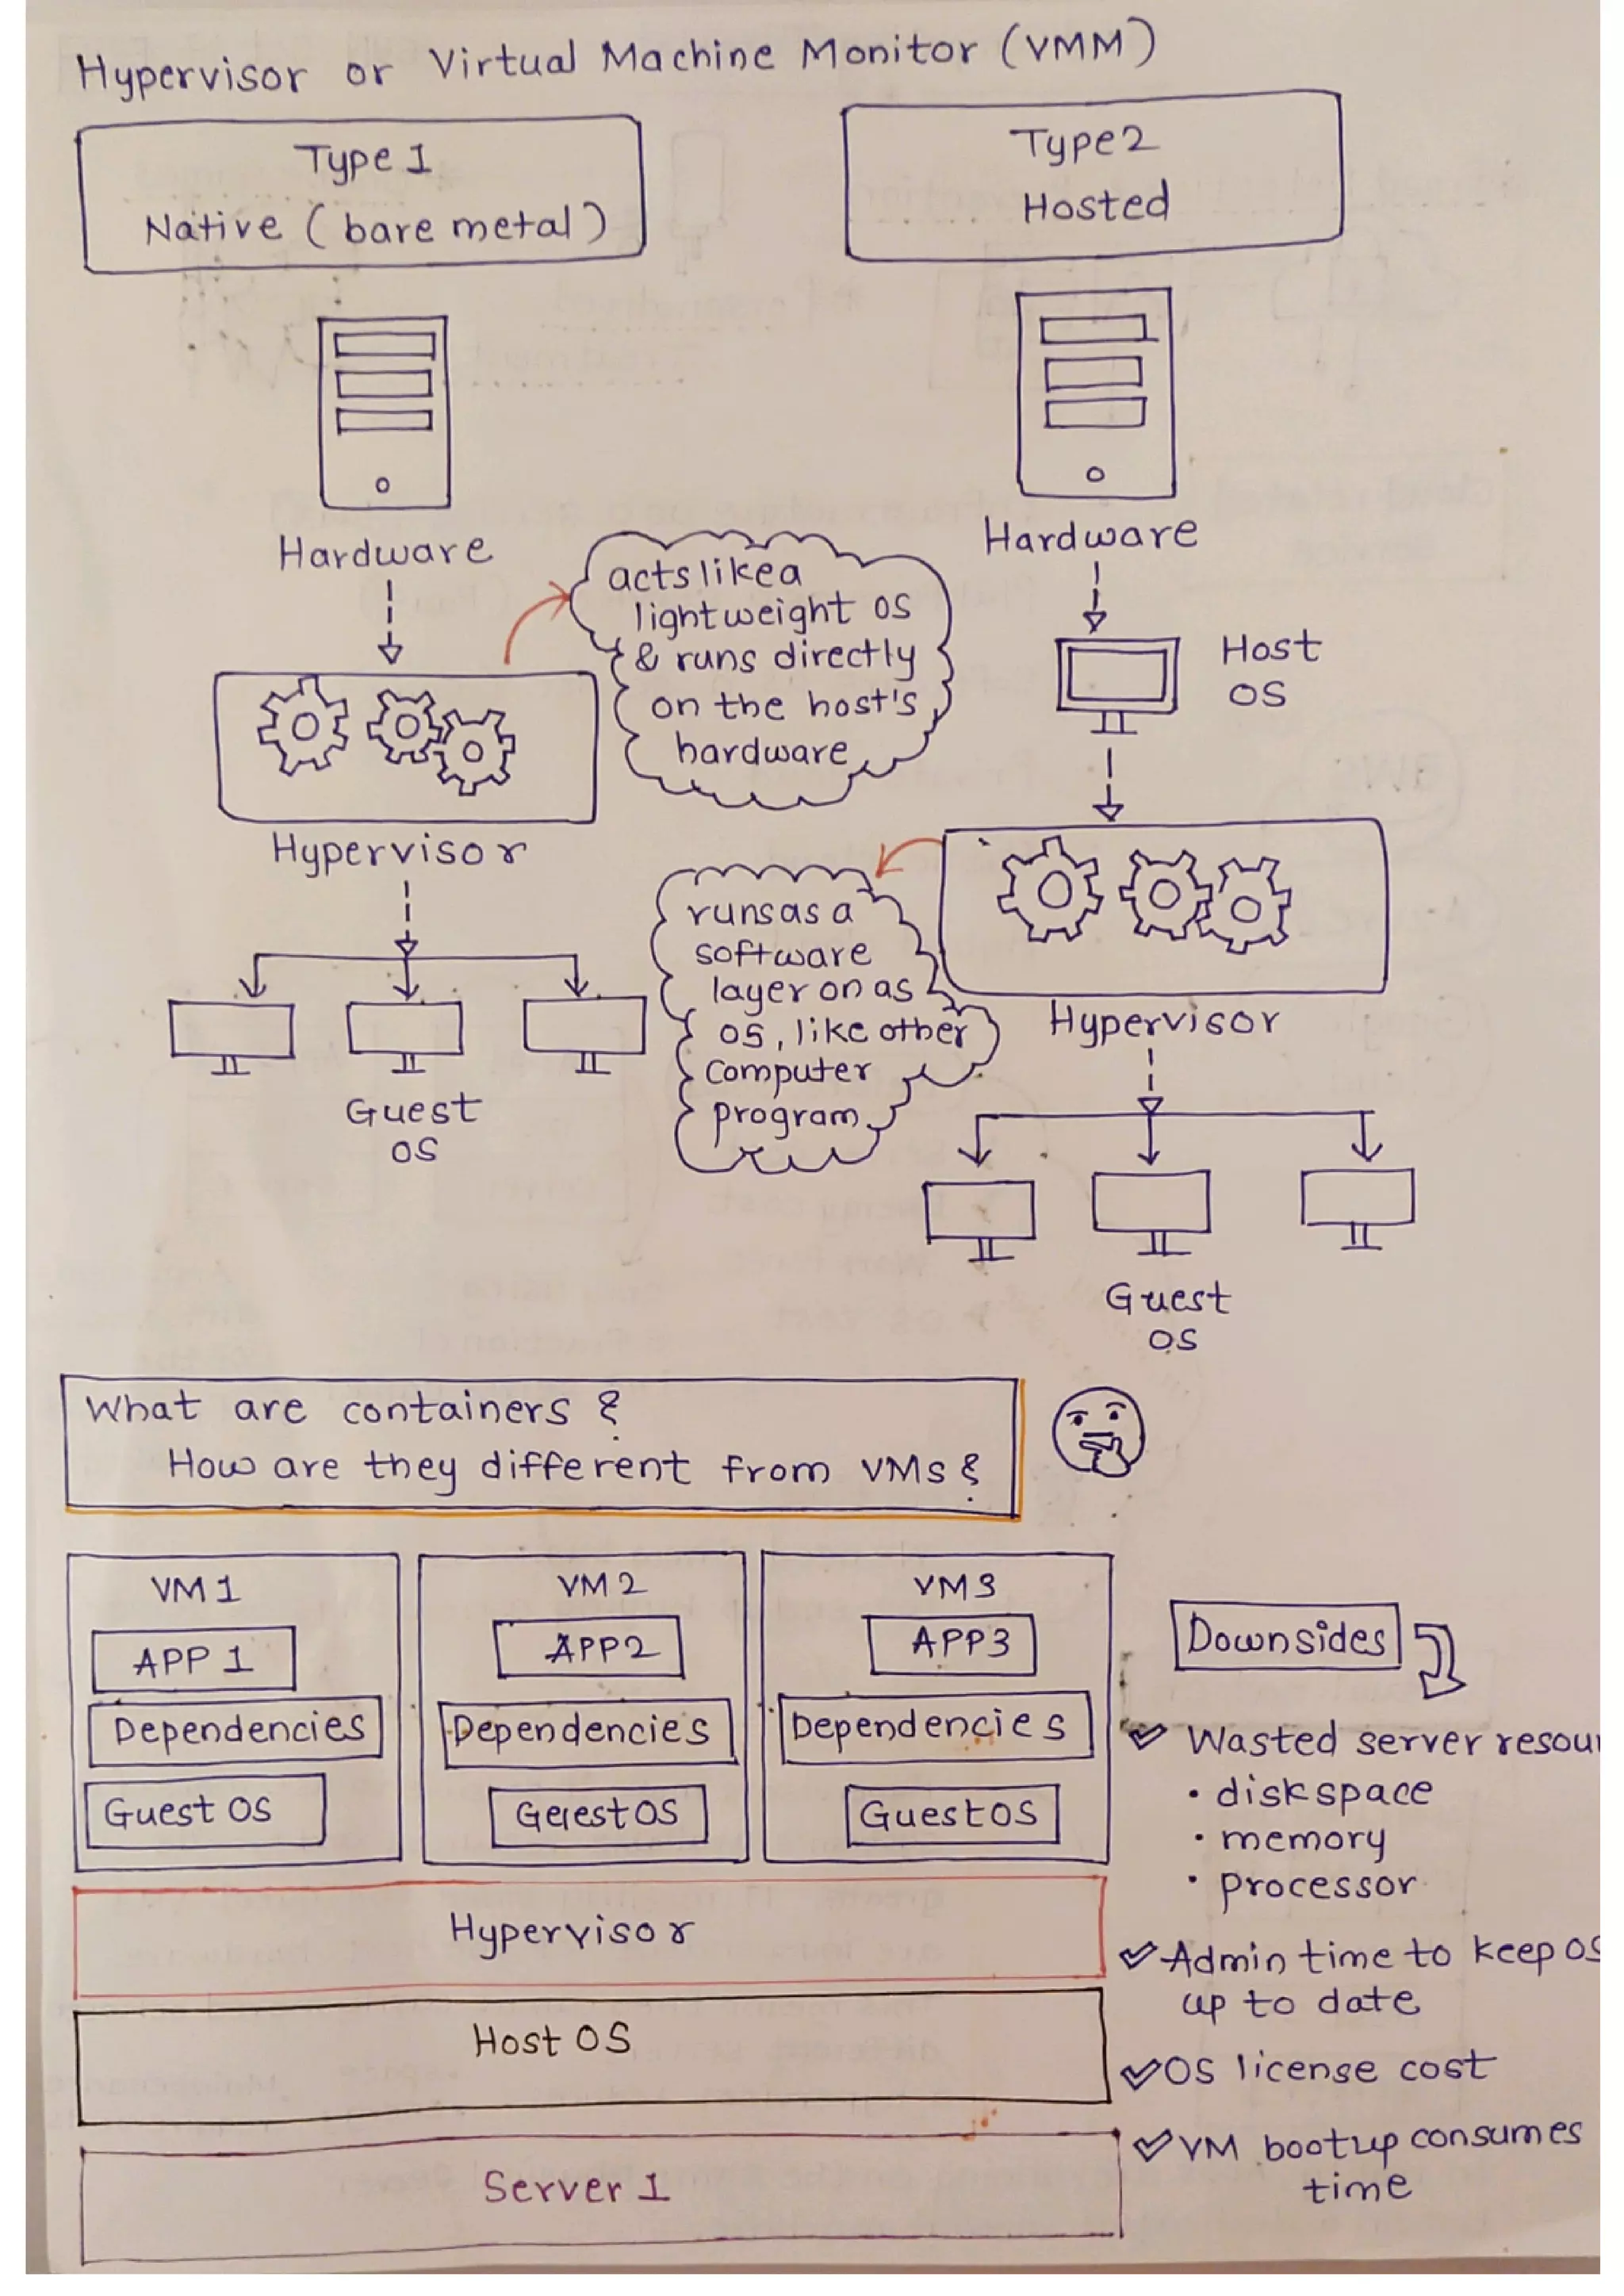 Hypervisor or Virtual Machine Monitor (VMM)
Type 1
Native (bare metal)
Type 2
Hosted
Hardware
acts like a
lightweight OS
& runs directly
on the host's
hardware
Hypervisor
Guest
OS
Hardware
Host
OS
runs as a
software
layer on as
OS, like other
computer
program
Hypervisor
Guest
OS
What are containers ?
How are they different from VMs ?
VM 1
APP 1
Dependencies
Guest OS
VM 2
APP2
Dependencies
Guest OS
VM 3
APP3
Dependencies
Guest OS
Hypervisor
Host OS
Server 1
Downsides
✓ Wasted server resou
• disk space
• memory
• processor
✓ Admin time to keep OS
up to date
✓ OS license cost
✓ VM bootup consumes
time